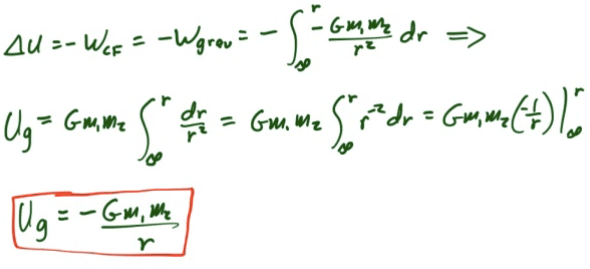 ΔU = -W_CF = -W_grav = -∫_∞^r -Gm₁m₂/r² dr ⇒
U_g = Gm₁m₂ ∫_∞^r dr/r² = Gm₁m₂ ∫_∞^r r⁻² dr = Gm₁m₂(-1/r)|_∞^r
U_g = -Gm₁m₂/r